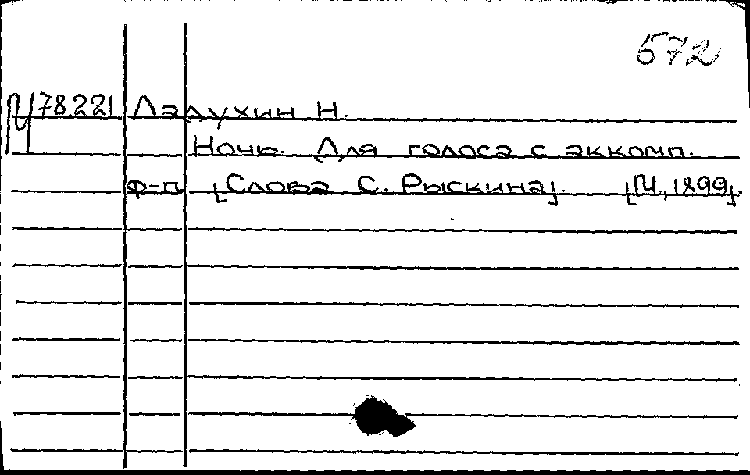 572
М 78221 Ладухин Н.
Ночь. Для голоса с аккомп.
ф-п. [Слова С. Рыскина]. [М., 1899].